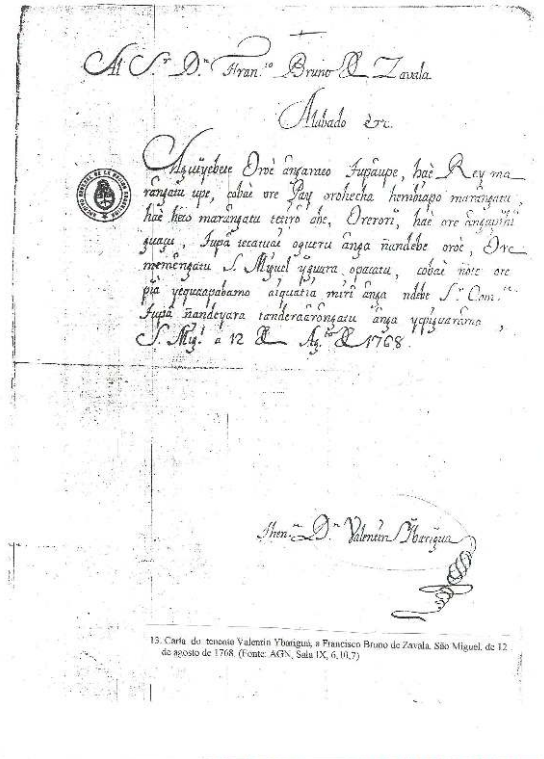 Al S.r D.n Fran.co Bruno de Zavala
Alabado etc.
Aguÿebete Oroè ângaraeo Tupâupe, haè Rey ma
rângatu upe, cobaè ore Paÿ orohecha hembiapo marângatu,
haè heco marângatu tetirô abe, Orororÿ, haè ore
guaçu, Tupâ oguеru ânga ñandebe oroè, Ore
memêngatu S. Miguel ÿguara opacatu, cobaè note ore
pïa yequaapabamo aiquatia mirî ânga ndebe S.r Com.te
Tupâ ñandeyara tanderaârôngatu ânga
S. Mig.l a 12 de Ag.to de 1768.
ARCHIVO GENERAL DE LA NACION ARGENTINA
Then.te D.n Valentin Ybarigua
13. Carta do tenente Valentin Ybariguá, a Francisco Bruno de Zavala. São Miguel, de 12
de agosto de 1768. (Fonte: AGN, Sala IX, 6,10,7)